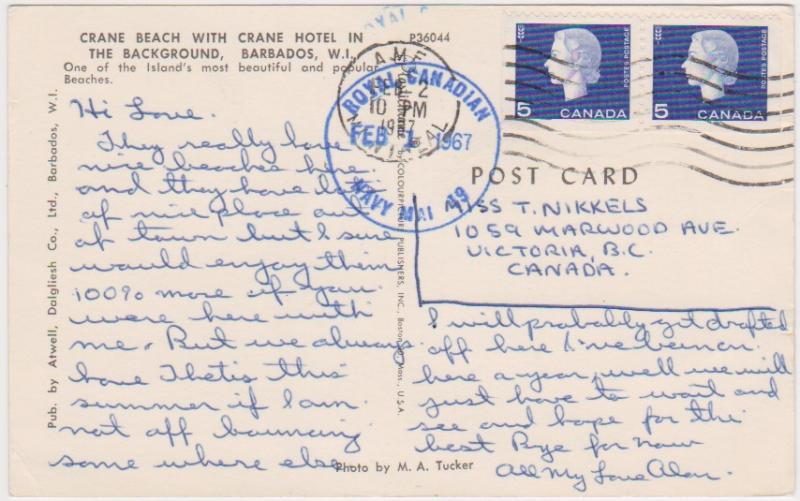 CRANE BEACH WITH CRANE HOTEL IN
THE BACKGROUND, BARBADOS, W.I.
P36044
One of the Island's most beautiful and popular
Beaches.
Hi Love.
They really have
nice beaches here.
and they have lots
of nice place out
of town but I sure
would enjoy them
100% more if you
were here with
me. But we always
have Thetis this
summer if I am
not off bouncing
some where else.
Pub. by Atwell, Dalgliesh Co., Ltd., Barbados, W.I.
Photo by M. A. Tucker
by COLOURPICTURE PUBLISHERS, INC., Boston, Mass., U.S.A.
FEB 2
10 PM
1967
ROYAL CANADIAN
FEB 1 1967
NAVY MAIL
5 CANADA
POSTES POSTAGE
5 CANADA
POSTES POSTAGE
POST CARD
MISS T. NIKKELS
1059 MARWOOD AVE.
VICTORIA, B.C.
CANADA.
I will probably get drafted
off here I've been on
here a year, well we will
just have to wait and
see and hope for the
best Bye for now
All My Love Alan.